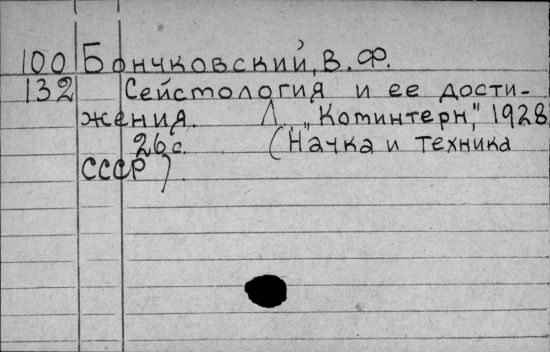 100 Бончковский, В. Ф.
132 Сейсмология и ее дости-
жения. Л. „Коминтерн," 1928
26 с. (Наука и техника
СССР).